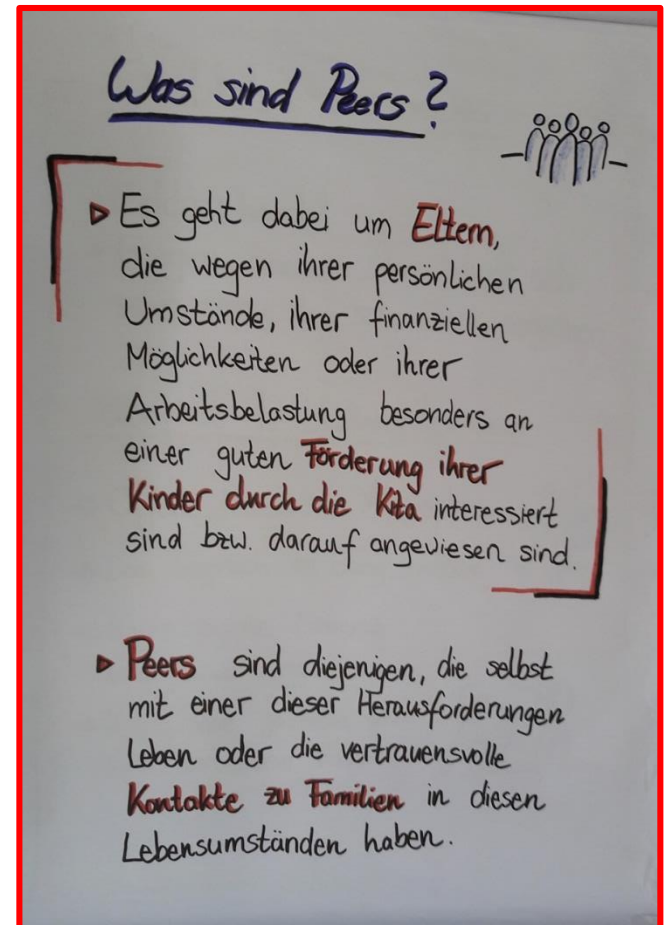 Was sind Peers?
Es geht dabei um Eltern,
die wegen ihrer persönlichen
Umstände, ihrer finanziellen
Möglichkeiten oder ihrer
Arbeitsbelastung besonders an
einer guten Förderung ihrer
Kinder durch die Kita interessiert
sind bzw. darauf angewiesen sind.
Peers sind diejenigen, die selbst
mit einer dieser Herausforderungen
Leben oder die vertrauensvolle
Kontakte zu Familien in diesen
Lebensumständen haben.